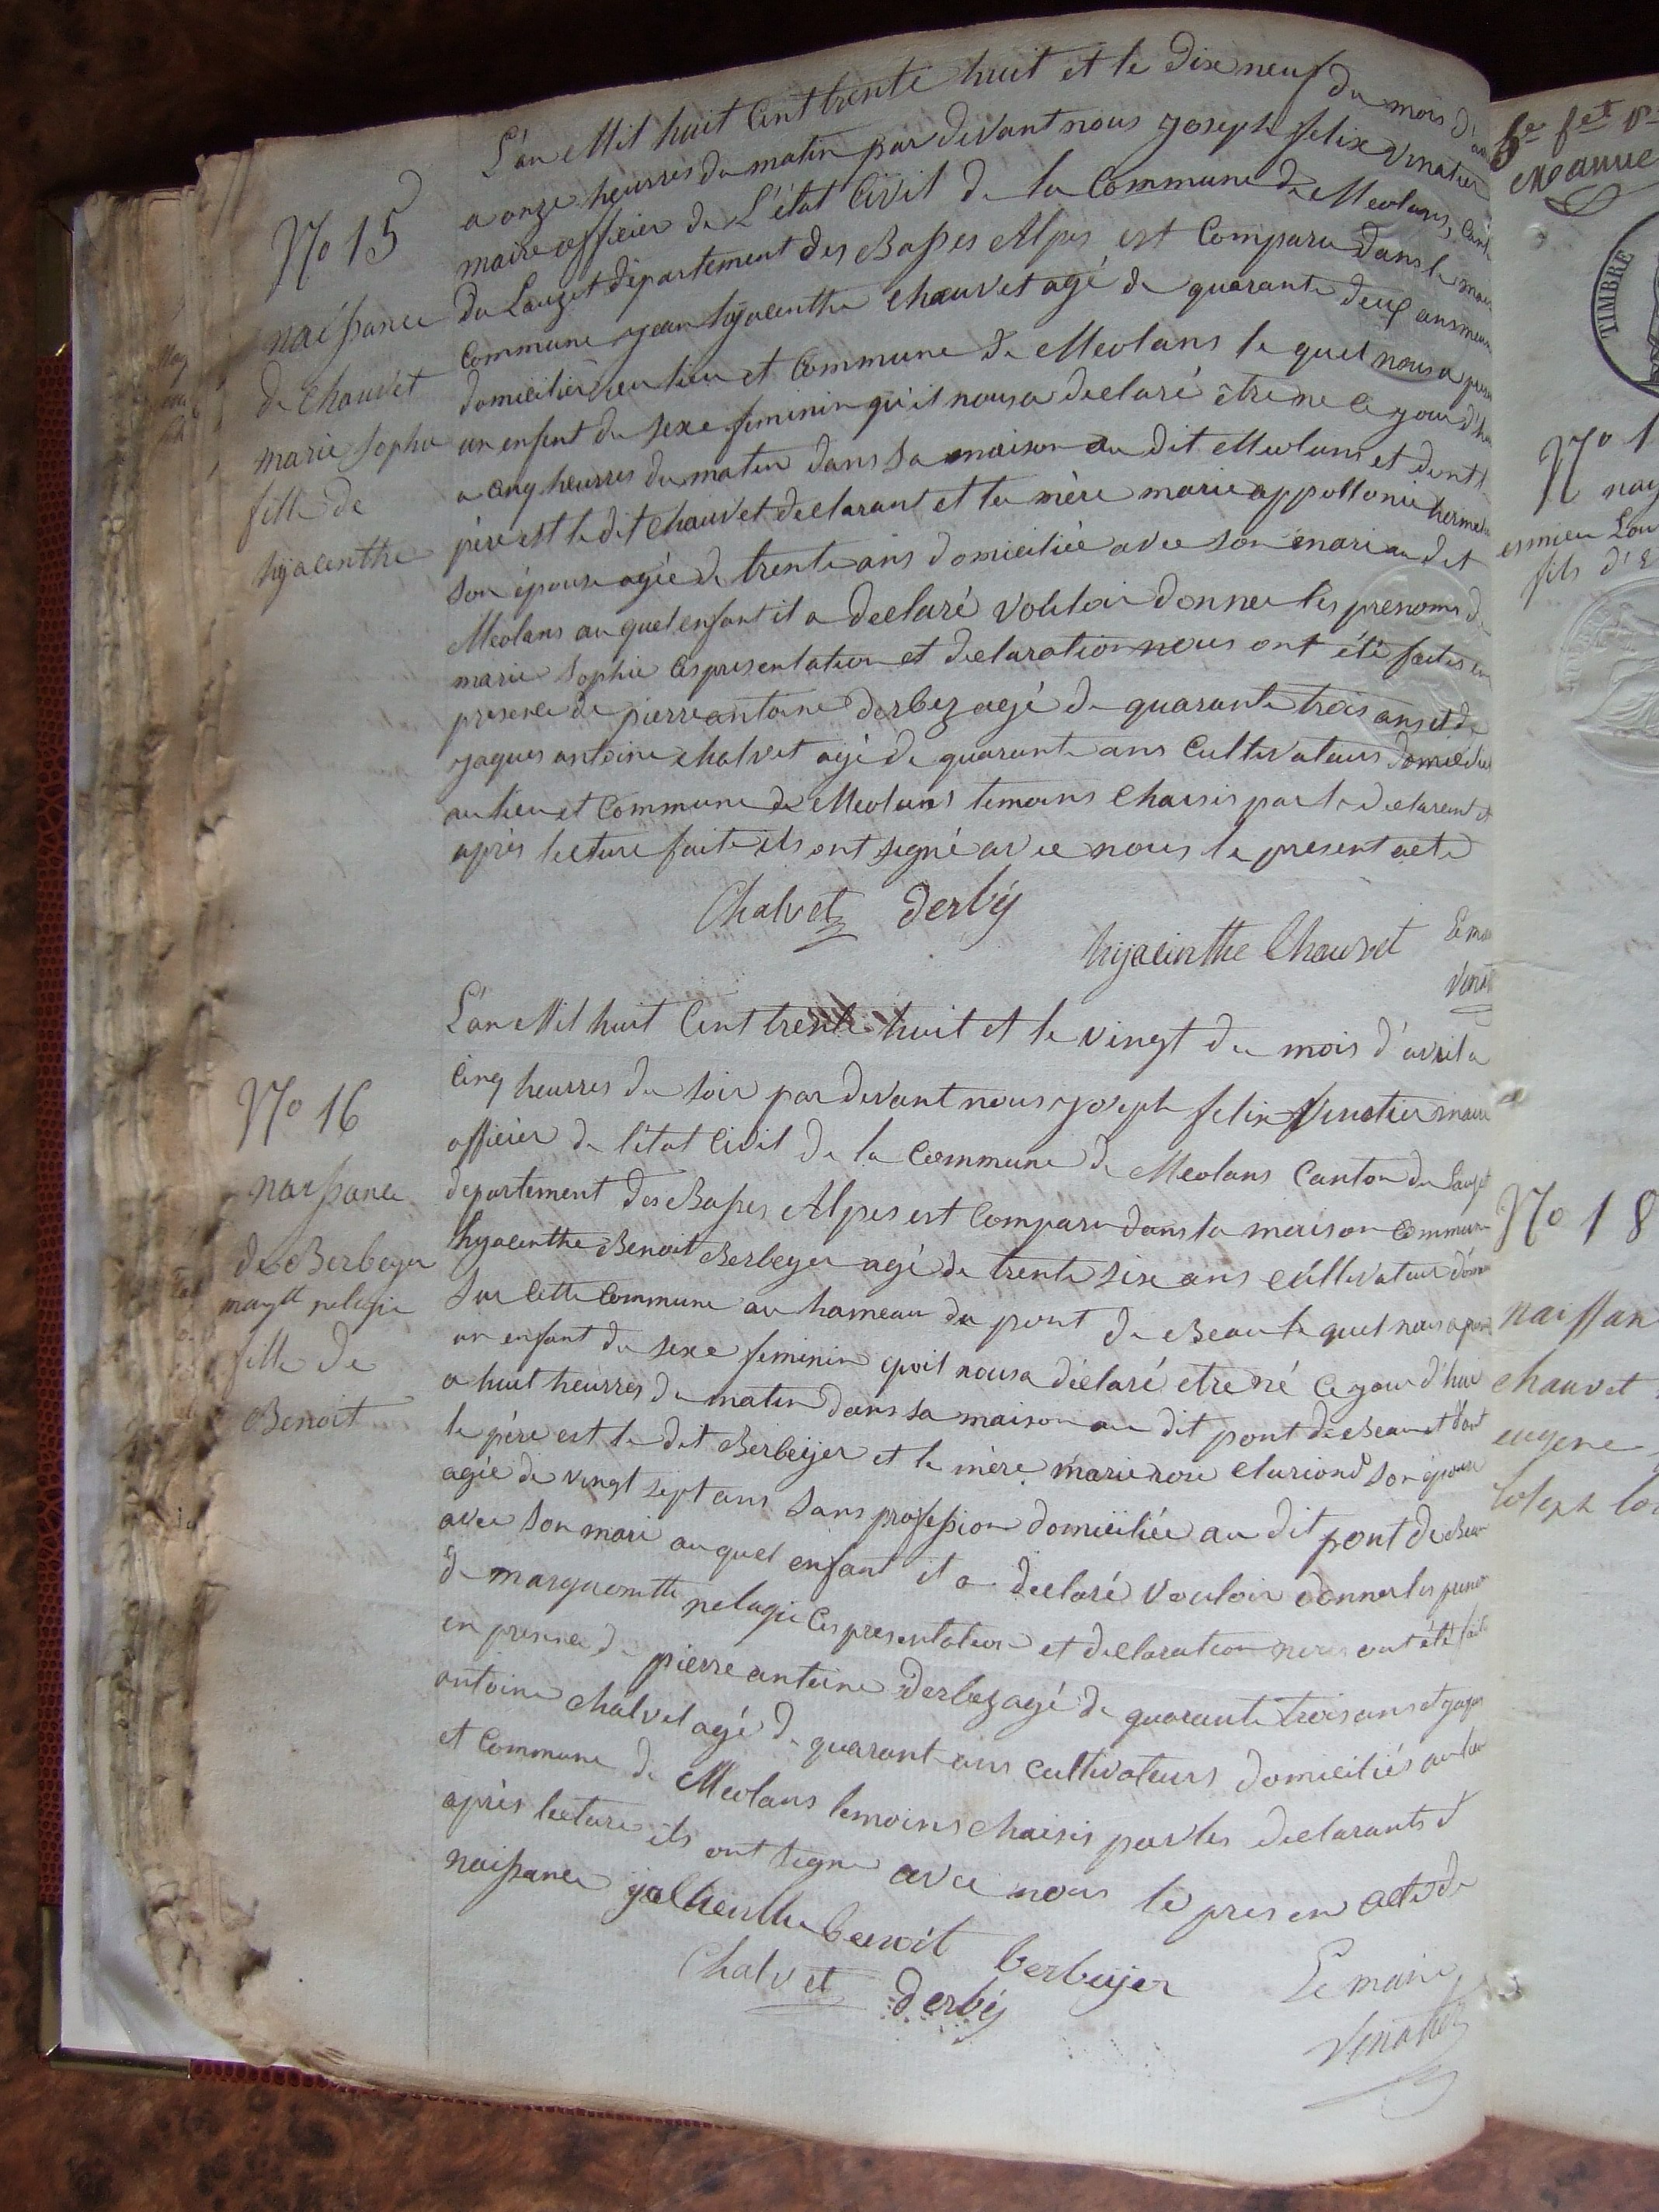 No 15
naissance
de Chauvet
marie Sophie
fille de
hyacinthe
L'an Mil huit Cent trente huit et le dix neuf du mois d'
a onze heurres du matin par devant nous joseph felix vinatier
maire officier de L'état Civil de la Commune de Meolans, Cant
du Lauzet département des Basses Alpes est Comparu dans la mai
Commune jean hyacinthe Chauvet agé de quarante deux ans
domicilié au lieu et Commune de Meolans le quel nous a
un enfent du sexe feminin qu'il nous a declaré être né ce jour d'h
a cinq heurres du matin dans sa maison au dit Meolans et dont
père est le dit Chauvet declarant et la mère marie appollonie
son épouse agée de trente ans domiciliée avec son mari au dit
Meolans au quel enfant il a declaré vouloir donner les prenoms de
marie Sophie Ces presentation et declaration nous ont été faites en
presence de pierre antoine derbez agé de quarante trois ans et de
jaques antoine chalvet agé de quarante ans Cultivateurs domicilié
au lieu et Commune de Meolans temoins Choisis par le declarant et
après lecture faite ils ont signé avec nous le present acte
Chalvet derbéz
hyacinthe Chauvet
Le ma
Vinat
No 16
naissance
de Berbeyer
margtt pelagie
fille de
Benoit
L'an Mil huit Cent trente huit et le vingt du mois d'avril a
Cinq heurres du soir par devant nous joseph felix Vinatier maire
officier de l'état Civil de la Commune de Meolans Canton du Lauzet
département des Basses Alpes est Comparu dans la maison Commune
hyacinthe Benoit Berbeyer agé de trente six ans cultivateur dom
sur cette Commune au hameau du pont de Beau le quel nous a
un enfant du sexe feminin qu'il nous a déclaré etre né ce jour d'hui
a huit heurres du matin dans sa maison au dit pont de Beau et dont
le père est le dit Berbeyer et la mère marie rose clariond son épouse
agée de vingt sept ans sans profession domiciliée au dit pont de Beau
avec son mari au quel enfant il a declaré vouloir donner les preno
de margueritte pelagie Ces presentation et declaration nous ont été fait
en presence de pierre antoine derbez agé de quarante trois ans et jaques
antoine chalvet agé de quarante ans cultivateurs domiciliés au lieu
et Commune de Meolans temoins choisis par les declarants et
après lecture ils ont signé avec nous le presen acte de
naissance
benoit berbeyer
Chalvet derbéz
Le maire
Vinatier
TIMBRE
No 1
nay
fils d'E
No 18
naissan
chauvet
eugene